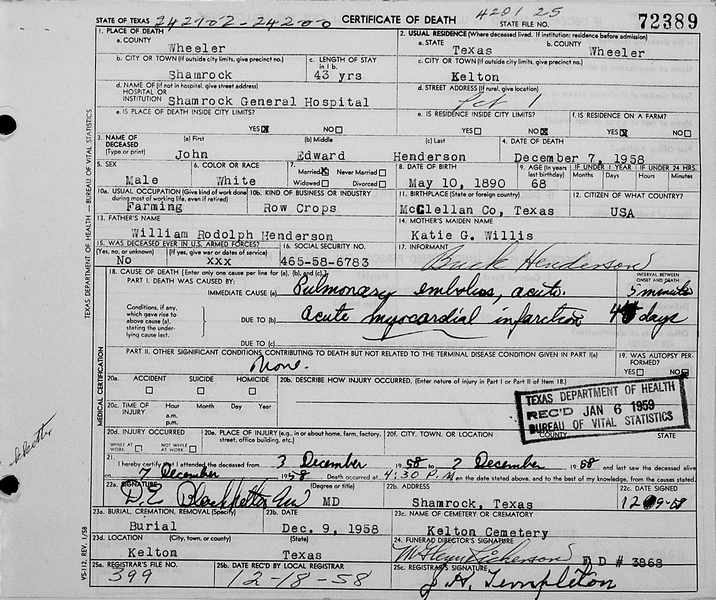 STATE OF TEXAS 242702-24200 CERTIFICATE OF DEATH 4201 25 STATE FILE NO. 72389
1. PLACE OF DEATH 2. USUAL RESIDENCE (Where deceased lived. If institution: residence before admission)
a. COUNTY Wheeler a. STATE Texas b. COUNTY Wheeler
b. CITY OR TOWN (If outside city limits, give precinct no.) Shamrock c. LENGTH OF STAY in 1 b. 43 yrs c. CITY OR TOWN (If outside city limits, give precinct no.) Kelton
d. NAME OF (If not in hospital, give street address) HOSPITAL OR INSTITUTION Shamrock General Hospital d. STREET ADDRESS (If rural, give location) 1
e. IS PLACE OF DEATH INSIDE CITY LIMITS? YES X NO e. IS RESIDENCE INSIDE CITY LIMITS? YES NO X f. IS RESIDENCE ON A FARM? YES X NO
3. NAME OF DECEASED (Type or print) (a) First John (b) Middle Edward (c) Last Henderson 4. DATE OF DEATH December 7, 1958
5. SEX Male 6. COLOR OR RACE White 7. Married X Never Married Widowed Divorced 8. DATE OF BIRTH May 10, 1890 9. AGE (In years last birthday) 68 IF UNDER 1 YEAR Months Days IF UNDER 24 HRS. Hours Minutes
10a. USUAL OCCUPATION (Give kind of work done during most of working life, even if retired) Farming 10b. KIND OF BUSINESS OR INDUSTRY Row Crops 11. BIRTHPLACE (State or foreign country) McClellan Co, Texas 12. CITIZEN OF WHAT COUNTRY? USA
13. FATHER'S NAME William Rodolph Henderson 14. MOTHER'S MAIDEN NAME Katie G. Willis
15. WAS DECEASED EVER IN U.S. ARMED FORCES? (Yes, no, or unknown) No (If yes, give war or dates of service) xxx 16. SOCIAL SECURITY NO. 465-58-6783 17. INFORMANT Buck Henderson
18. CAUSE OF DEATH [Enter only one cause per line for (a), (b), and (c).] INTERVAL BETWEEN ONSET AND DEATH
PART I. DEATH WAS CAUSED BY:
IMMEDIATE CAUSE (a) Pulmonary embolus, acute. 5 minutes
Conditions, if any, which gave rise to above cause (a), stating the underlying cause last. DUE TO (b) Acute myocardial infarction 4 days
DUE TO (c)
PART II. OTHER SIGNIFICANT CONDITIONS CONTRIBUTING TO DEATH BUT NOT RELATED TO THE TERMINAL DISEASE CONDITION GIVEN IN PART I(a) None. 19. WAS AUTOPSY PERFORMED? YES NO X
20a. ACCIDENT SUICIDE HOMICIDE 20b. DESCRIBE HOW INJURY OCCURRED. (Enter nature of injury in Part I or Part II of Item 18.)
20c. TIME OF INJURY Hour Month Day Year a.m. p.m.
TEXAS DEPARTMENT OF HEALTH
REC'D JAN 6 1959
BUREAU OF VITAL STATISTICS
20d. INJURY OCCURRED WHILE AT WORK NOT WHILE AT WORK 20e. PLACE OF INJURY (e.g., in or about home, farm, factory, street, office building, etc.) 20f. CITY, TOWN, OR LOCATION COUNTY STATE
21. I hereby certify that I attended the deceased from 3 December 1958 to 7 December 1958 and last saw the deceased alive
on 7 December 1958 Death occurred at 4:30 P.M. on the date stated above, and to the best of my knowledge, from the causes stated.
22a. SIGNATURE (Degree or title) MD 22b. ADDRESS Shamrock, Texas 22c. DATE SIGNED
23a. BURIAL, CREMATION, REMOVAL (Specify) Burial 23b. DATE Dec. 9, 1958 23c. NAME OF CEMETERY OR CREMATORY Kelton Cemetery
23d. LOCATION (City, town, or county) Kelton (State) Texas 24. FUNERAL DIRECTOR'S SIGNATURE F D # 3868
25a. REGISTRAR'S FILE NO. 399 25b. DATE REC'D BY LOCAL REGISTRAR 12-18-58 25c. REGISTRAR'S SIGNATURE J H Templeton
TEXAS DEPARTMENT OF HEALTH — BUREAU OF VITAL STATISTICS
MEDICAL CERTIFICATION
VS-112 REV. 1/58